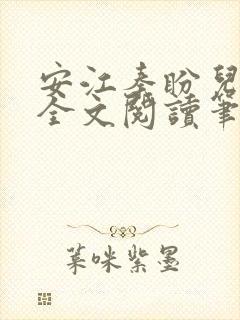 安江秦盼兒
全文閱讀筆
葉咪紫墨